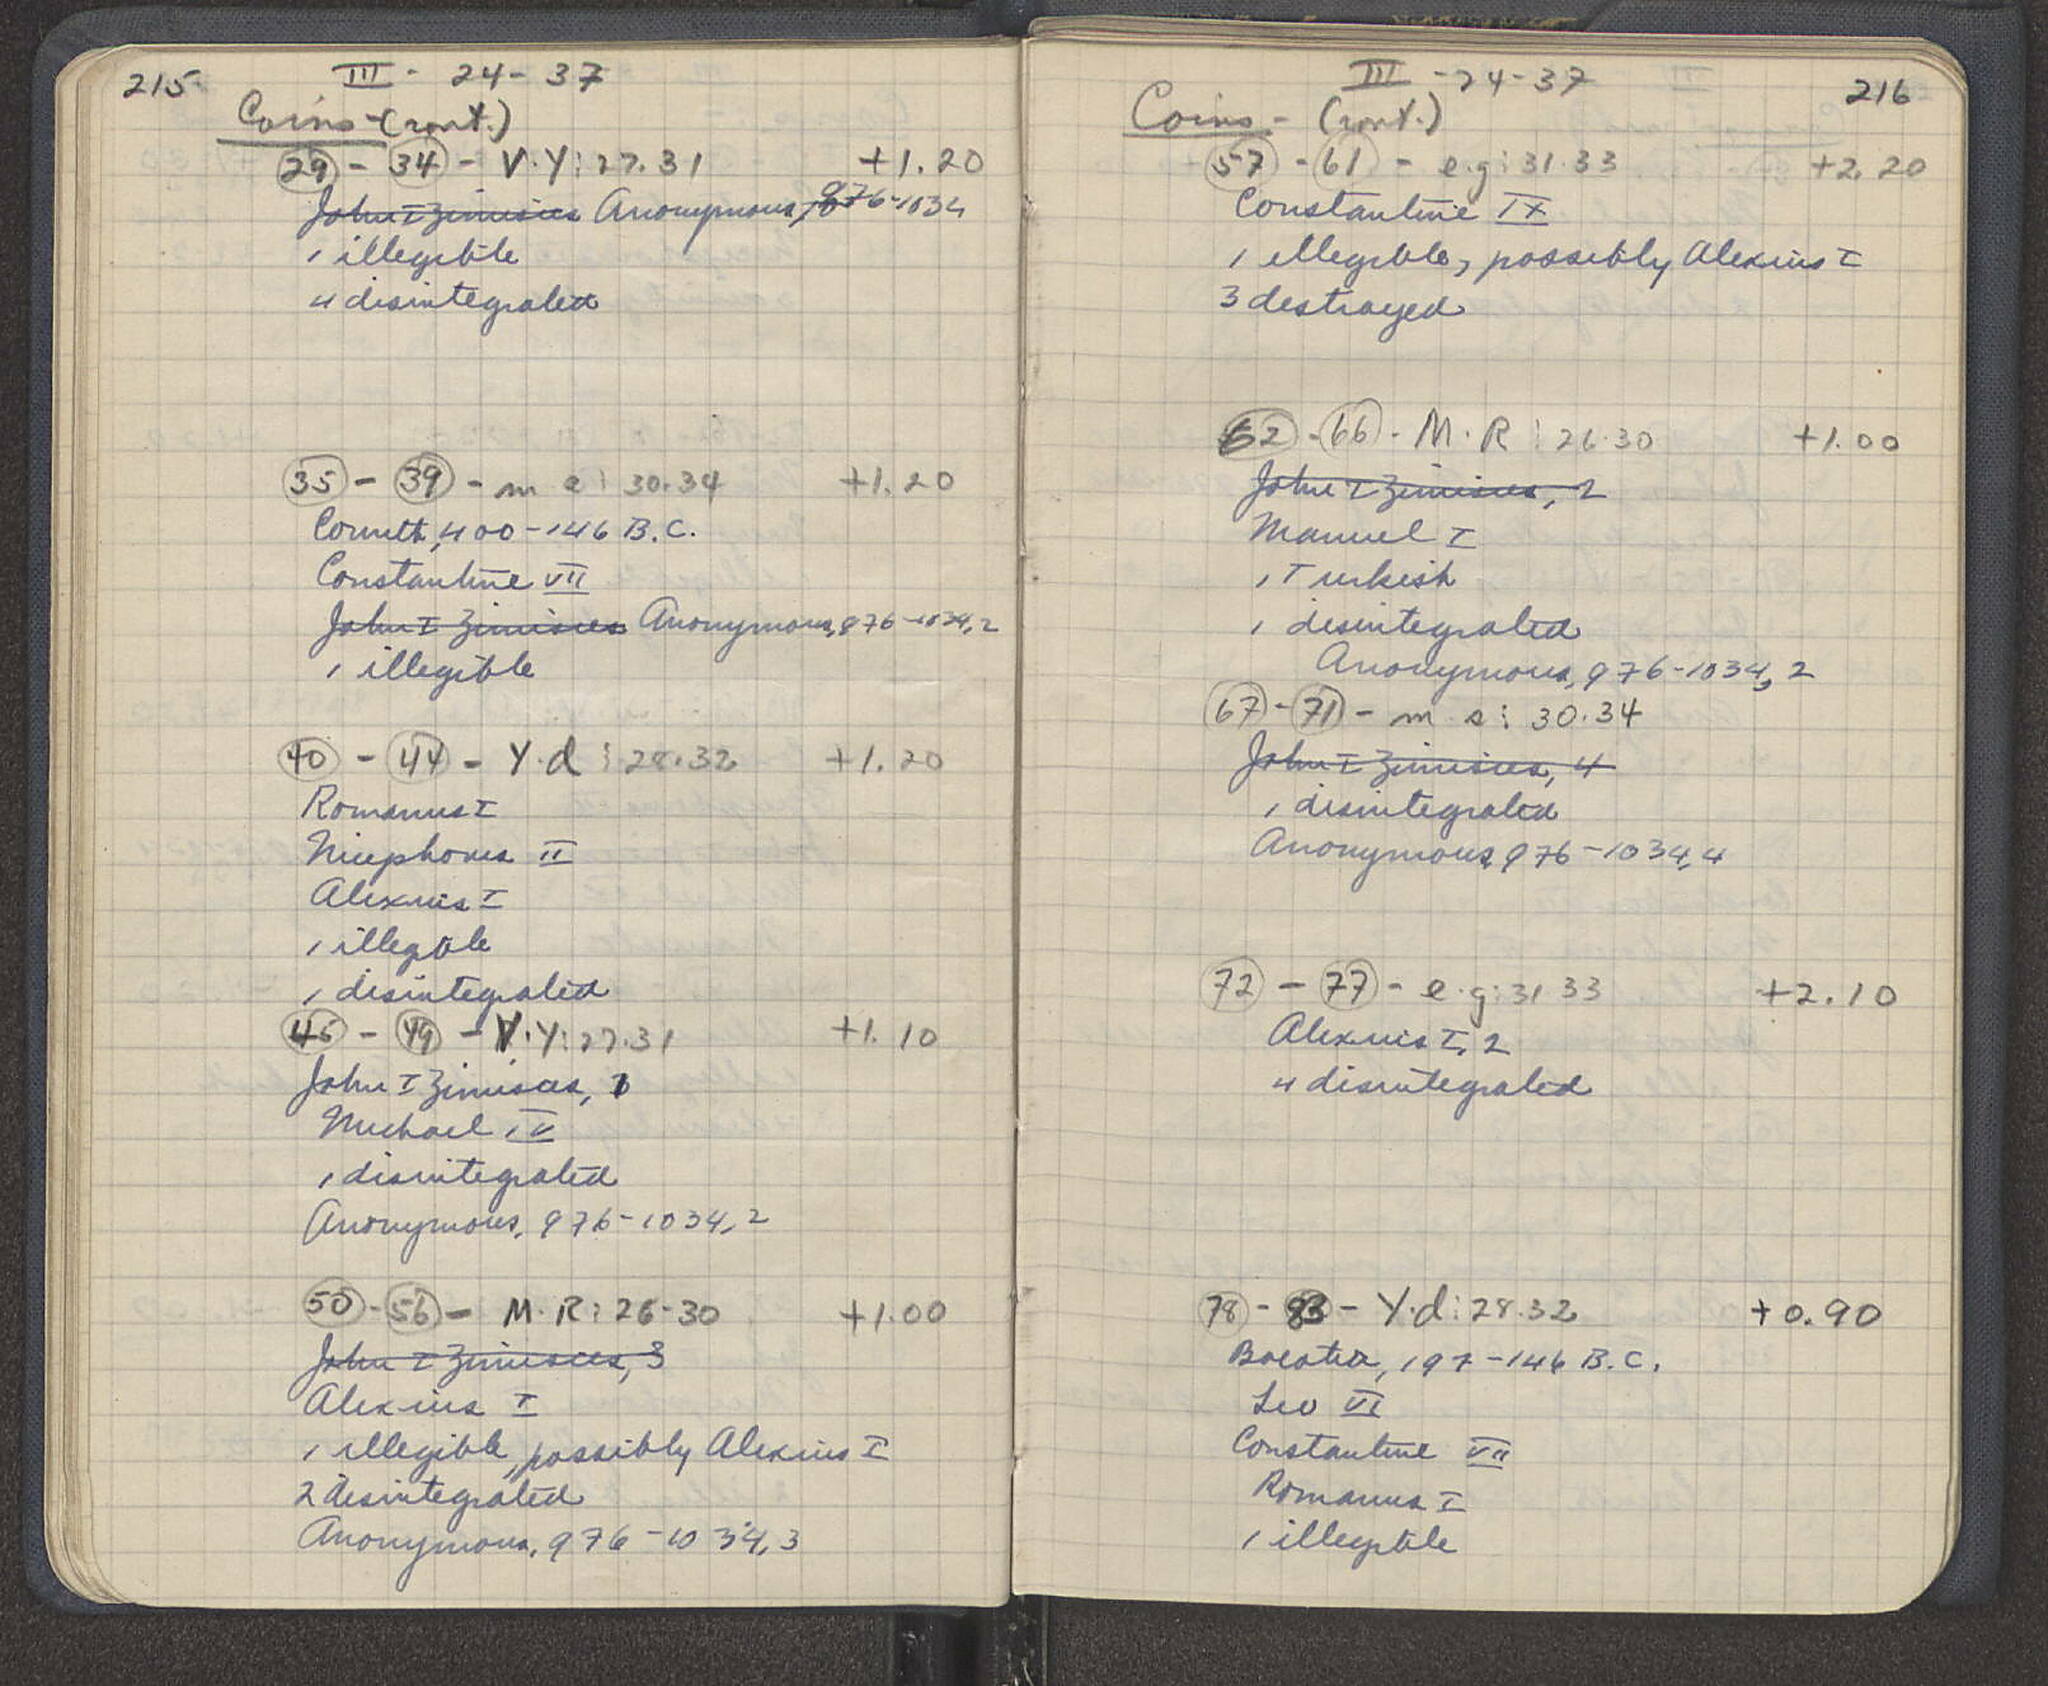 215
III - 24 - 37
Coins - (cont.)
29 - 34 - V.Y: 27.31 +1.20
John I Zimisces Anonymous, 976-1034
1 illegible
4 disintegrated
35 - 39 - m s: 30.34 +1.20
Corinth, 400-146 B.C.
Constantine VII
John I Zimisces Anonymous, 976-1034, 2
1 illegible
40 - 44 - Y.d: 28.32 +1.20
Romanus I
Nicephorus II
Alexius I
1 illegible
1 disintegrated
45 - 49 - V.Y: 27.31 +1.10
John I Zimisces, 1
Michael IV
1 disintegrated
Anonymous, 976-1034, 2
50 - 56 - M.R: 26-30 +1.00
John I Zimisces, 3
Alexius I
1 illegible, possibly Alexius I
2 disintegrated
Anonymous, 976-1034, 3
III - 24 - 37
216
Coins - (cont.)
57 - 61 - e.g: 31.33 +2.20
Constantine IX
1 illegible, possibly Alexius I
3 destroyed
62 - 66 - M.R: 26.30 +1.00
John I Zimisces, 2
Manuel I
1 Turkish
1 disintegrated
Anonymous, 976-1034, 2
67 - 71 - m s: 30.34
John I Zimisces, 4
1 disintegrated
Anonymous, 976-1034, 4
72 - 77 - e.g: 31 33 +2.10
Alexius I, 2
4 disintegrated
78 - 83 - Y.d: 28.32 +0.90
Boeotia, 197-146 B.C.
Leo VI
Constantine VII
Romanus I
1 illegible